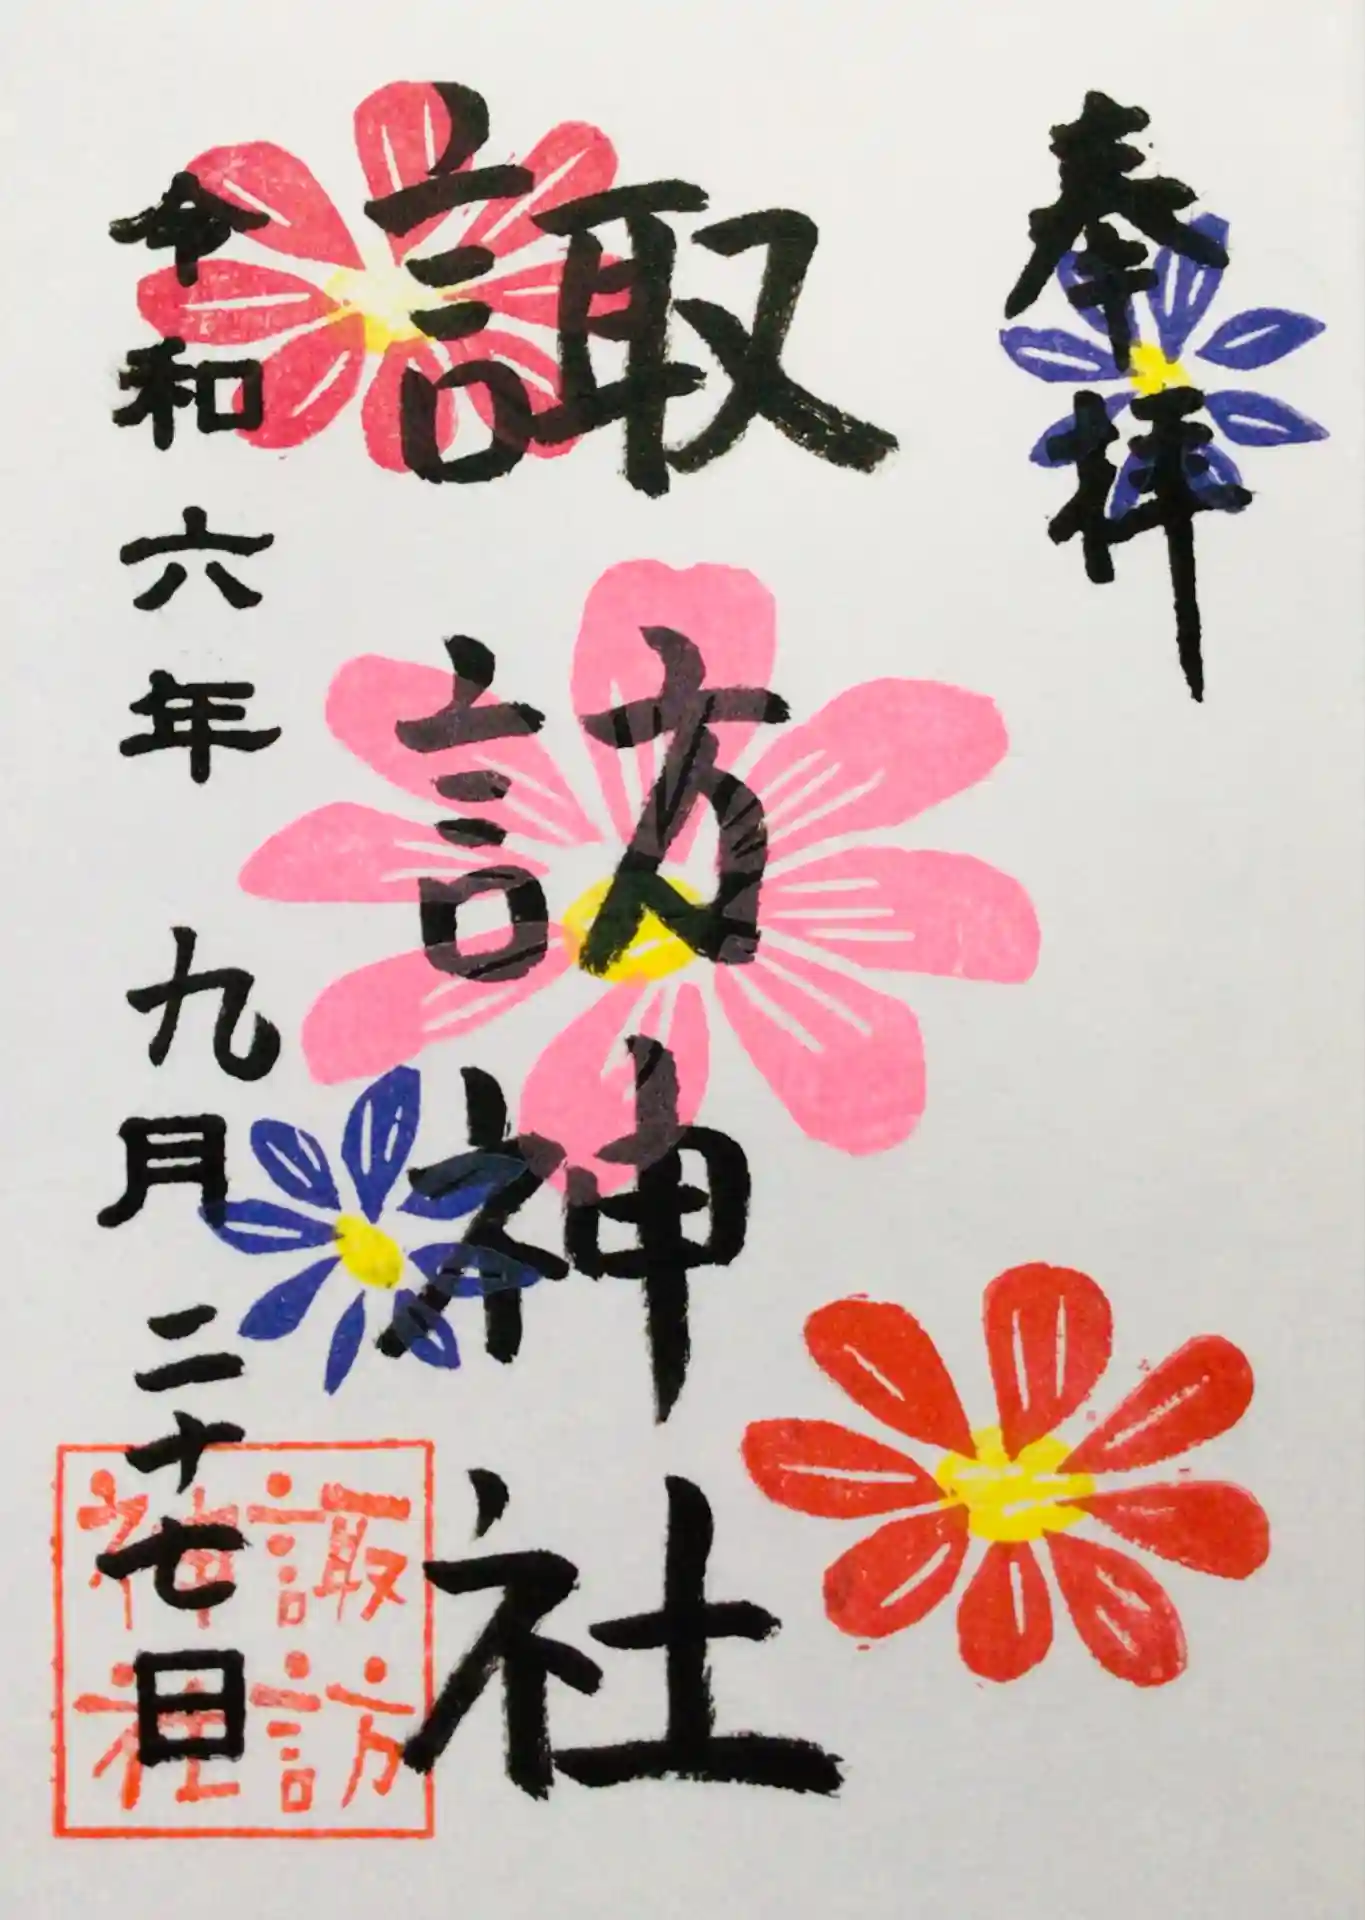 奉拝
諏訪神社
令和六年九月二十七日
諏訪
神社